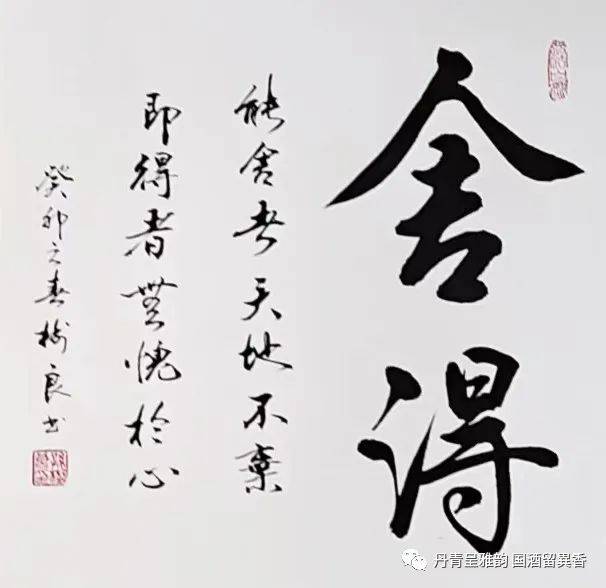 舍得
能舍者天地不棄
即得者無愧於心
癸卯之春樹良書
丹青呈雅韵 国酒留異香